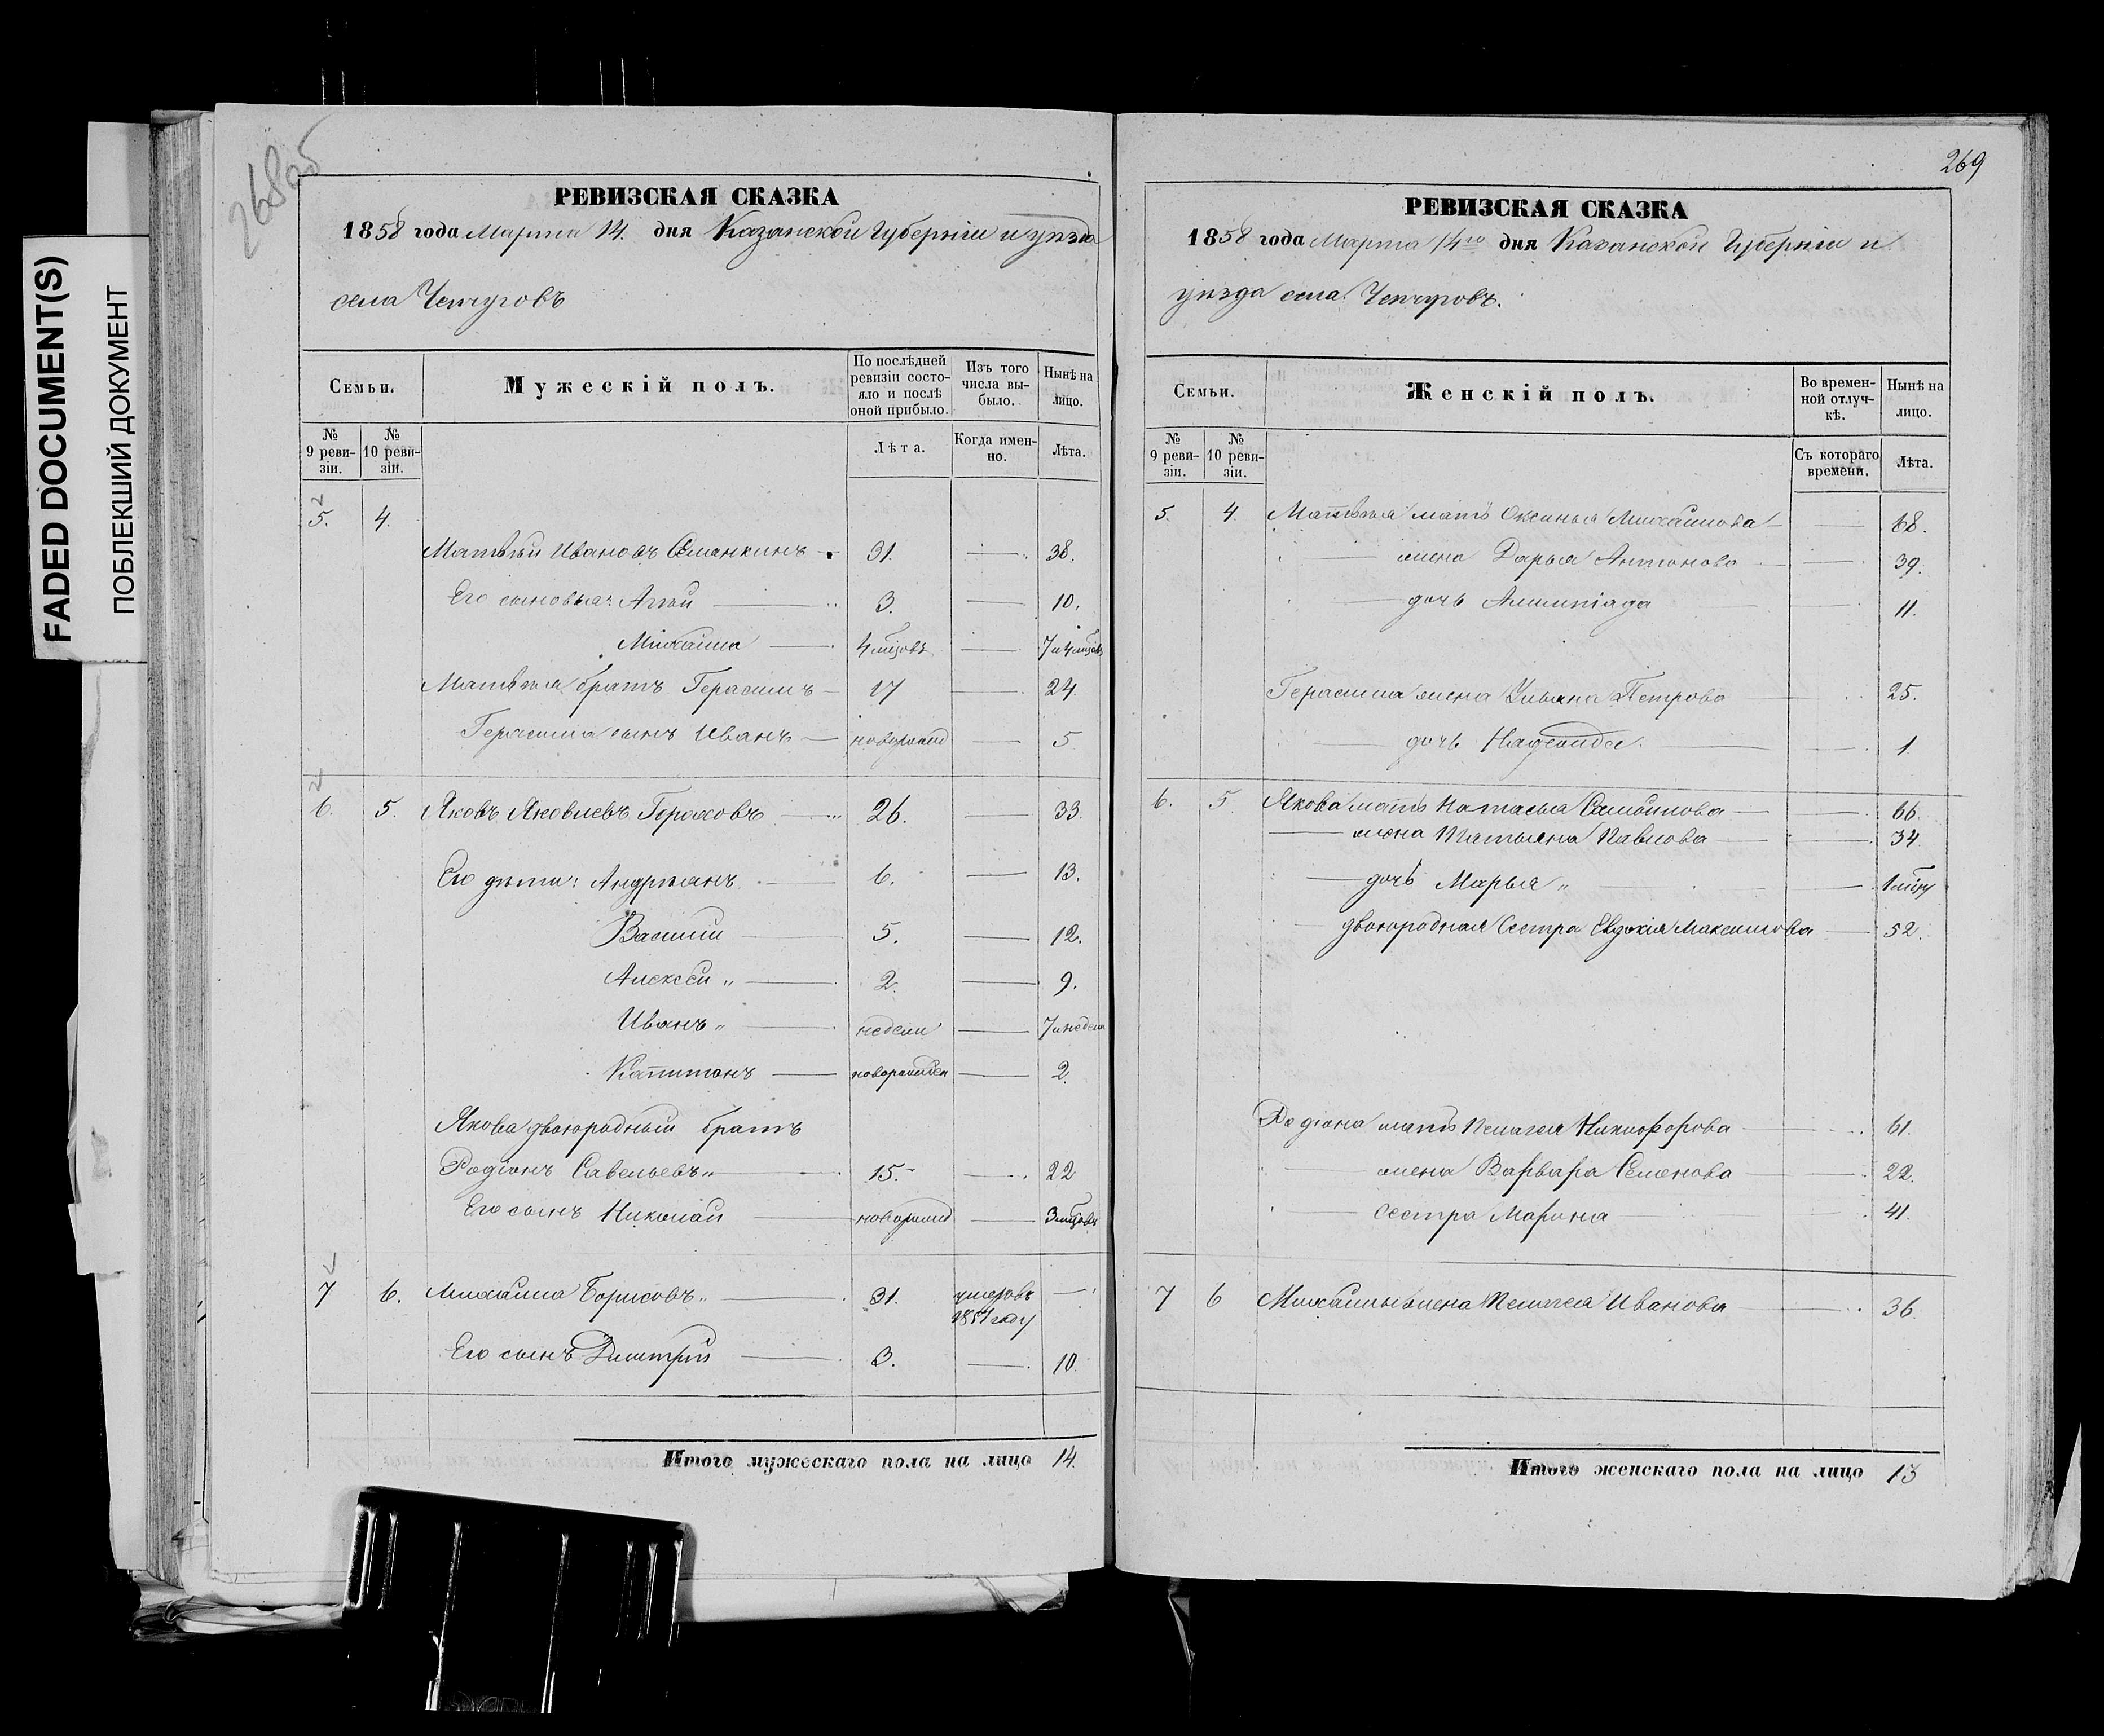 FADED DOCUMENT(S)
ПОБЛЕКШИЙ ДОКУМЕНТ
268об
РЕВИЗСКАЯ СКАЗКА
1858 года Марта 14. дня Казанской Губерніи и уѣзда
села Чепчуговъ
Семьи.
Мужескій полъ.
По послѣдней ревизіи состояло и послѣ оной прибыло.
Изъ того числа выбыло.
Нынѣ на лицо.
№ 9 ревизіи.
№ 10 ревизіи.
Лѣта.
Когда именно.
Лѣта.
5. 4.
Матвѣй Ивановъ 31. — 38.
Его сыновья: — 3. — 10.
Михайла — 4 мцовъ — 7 и 4 мцовъ
Матвѣя братъ Герасимъ — 17 — 24
Герасима сынъ Иванъ — новорожд — 5
6. 5. Яковъ Яковлевъ Гороховъ — 26. — 33.
Его дѣти: Андрианъ — 6. — 13.
Василий — 5. — 12.
Алексѣй „ — 2. — 9.
Иванъ „ — недели — 7 и недели
Капитонъ — новорожден — 2.
Якова двоюродный братъ
Родіонъ Савельевъ „ — 15. — 22
Его сынъ Николай — новорожд — 3 мцовъ
7 6. Михайла Борисовъ „ — 31. умеръ въ 1851 году —
Его сынъ Дмитрій — 3. — 10.
Итого мужескаго пола на лицо 14.
269
РЕВИЗСКАЯ СКАЗКА
1858 года Марта 14го дня Казанской Губерніи и
уѣзда села Чепчуговъ.
Семьи.
Женскій полъ.
Во временной отлучкѣ.
Нынѣ на лицо.
№ 9 ревизіи.
№ 10 ревизіи.
Съ котораго времени.
Лѣта.
5. 4. Матвѣя мать Оксинья Михайлова — 68.
— жена Дарья Антонова — 39.
— дочь Алимпіада 11.
Герасима жена Ульяна Петрова 25.
— дочь Надежида. — 1
6. 5 Якова мать Наталья Самойлова — 66.
— жена Татьяна Павлова — 34.
— дочь Марья „ — 1 мцу
— двоюродная Сестра Евдокія Максимова — 52.
Родіона мать Пелагея Никифорова — 61.
— жена Варвара Семенова — 22.
— сестра Марина 41.
7 6 Михайлы жена Пелагея Иванова — 36.
Итого женскаго пола на лицо 13